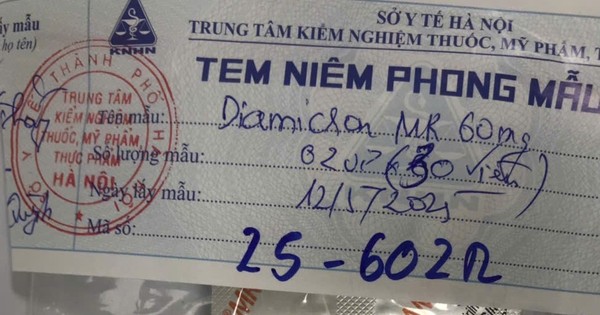 SỞ Y TẾ HÀ NỘI
TRUNG TÂM KIỂM NGHIỆM THUỐC, MỸ PHẨM, T
ấy mẫu
họ tên)
KNHN
TEM NIÊM PHONG MẪU
Y TẾ THÀNH PHỐ HÀ NỘI
TRUNG TÂM
KIỂM NGHIỆM
THUỐC, MỸ PHẨM
THỰC PHẨM
HÀ NỘI
Tên mẫu: Diamicron MR 60mg
Số lượng mẫu: (30 viên)
Ngày lấy mẫu: 12/5/2025
Mã số: 25-602